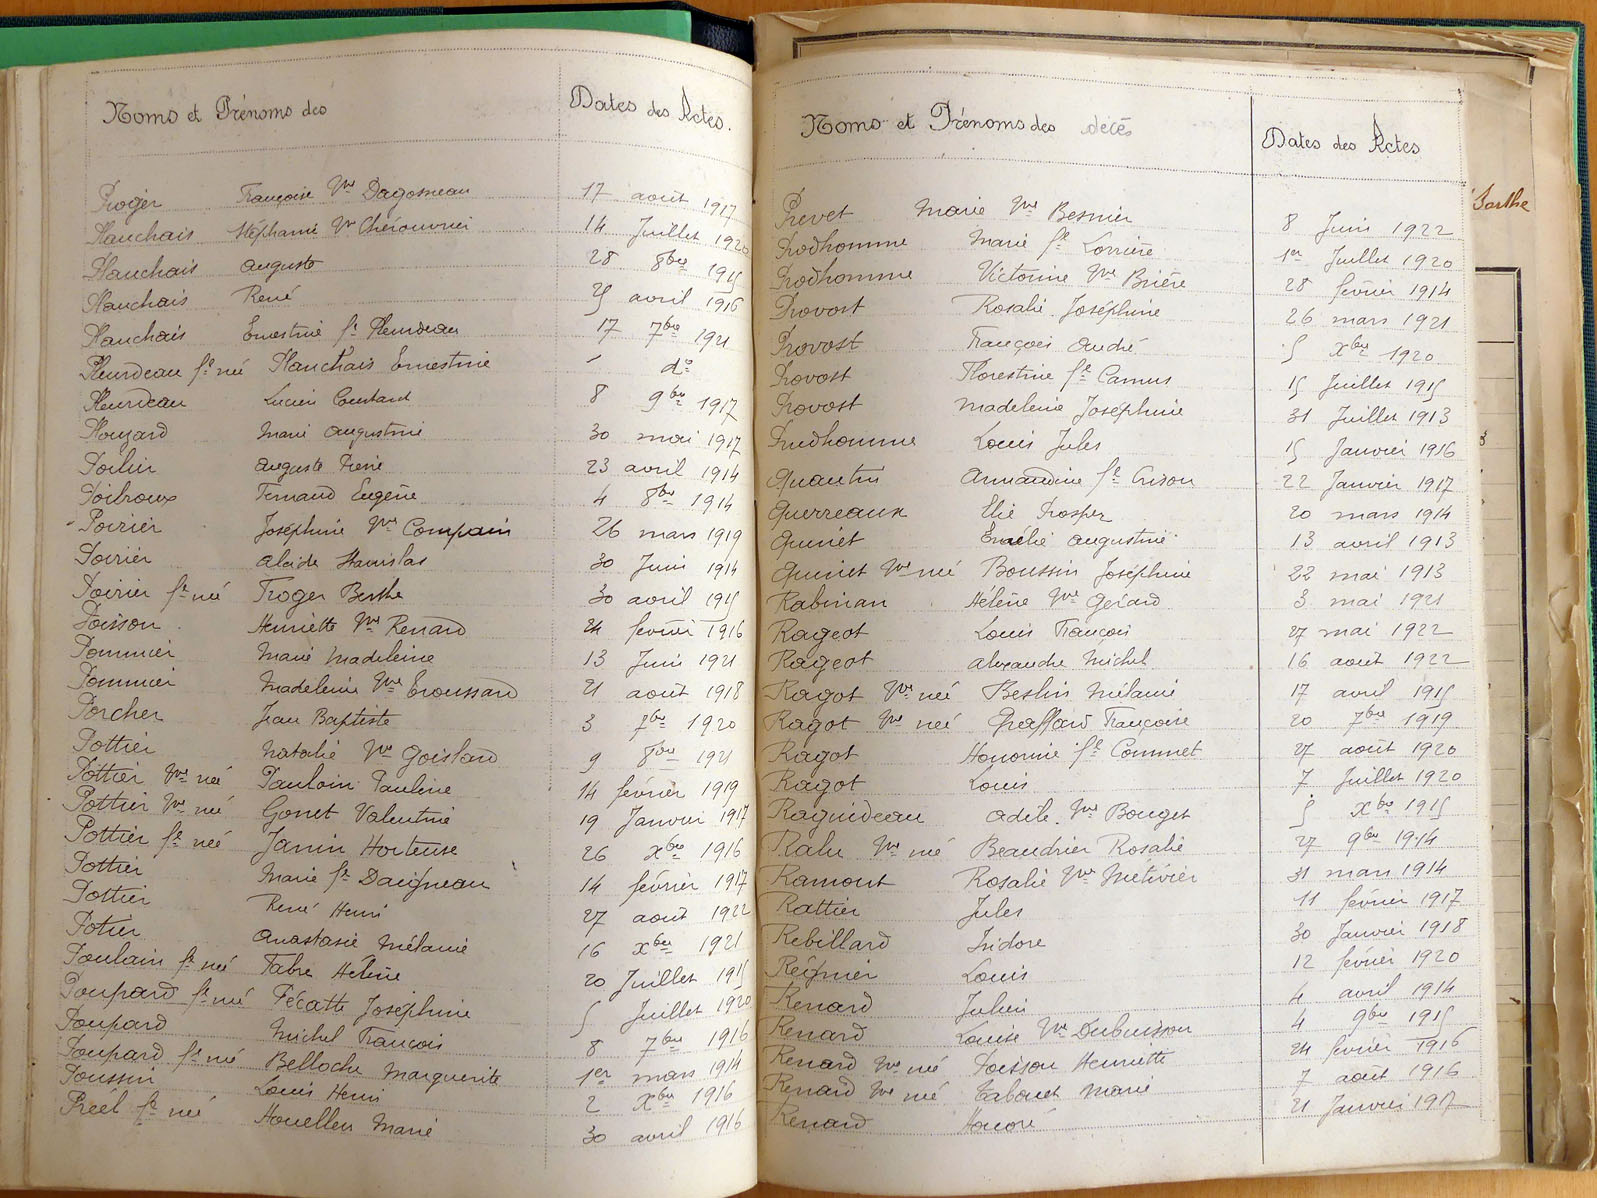 Noms et Prénoms des Dates des Actes.
Proger Françoise Vve Dagosneau 17 août 1917
Planchais Stéphanie Vve Chérouvrier 14 Juillet 1920
Planchais Auguste 28 8bre 1915
Planchais René 25 avril 1916
Planchais Ernestine fe Pleurdeau 17 7bre 1921
Pleurdeau fe née Planchais Ernestine - do
Pleurdeau Lucien Constant 8 9bre 1917
Plouzard Marie Augustine 30 mai 1917
Poilin Auguste Pierre 23 avril 1914
Poilroux Fernand Eugène 4 8bre 1914
Poirier Joséphine Vve Compain 26 mars 1919
Poirier Alcide Stanislas 30 Juin 1914
Poirier fe née Froger Berthe 30 avril 1915
Poisson Henriette Vve Renard 24 février 1916
Pommier Marie Madeleine 13 Juin 1921
Pommier Madeleine Vve Broussard 21 août 1918
Porcher Jean Baptiste 3 7bre 1920
Pottier Natalie Vve Goislard 9 8bre 1921
Pottier Vve née Pauloin Pauline 14 février 1919
Pottier Vve née Gonet Valentine 19 Janvier 1917
Pottier fe née Jamin Hortense 26 xbre 1916
Pottier Marie fe Daigneau 14 février 1917
Pottier René Henri 27 août 1922
Potier Anastasie Mélanie 16 xbre 1921
Poulain fe née Fabre Hélène 20 Juillet 1915
Poupard fe née Pécatte Joséphine 5 Juillet 1920
Poupard Michel François 8 7bre 1916
Poupard fe née Belloche Marguerite 1er mars 1914
Poussin Louis Henri 2 Xbre 1916
Préel fe née Houelleu Marie 30 avril 1916
Noms et Prénoms des décés Dates des Actes
Prevet Marie Vve Besnier 8 Juin 1922
Prodhomme Marie fe Lorrière 1er Juillet 1920
Prodhomme Victorine Vve Brière 28 février 1914
Provost Rosalie Joséphine 26 mars 1921
Provost François André 5 Xbre 1920
Provost Florestine fe Camus 15 Juillet 1915
Provost Madeleine Joséphine 31 Juillet 1913
Prudhomme Louis Jules 15 Janvier 1916
Quantin Armandine fe Crison 22 Janvier 1917
Querreaux Elie Prosper 20 mars 1914
Quinet Emélie Augustine 13 avril 1913
Quinet Vve née Boussin Joséphine 22 mai 1913
Rabinan Hélène Vve Gérard 3 mai 1921
Rageot Louis François 27 mai 1922
Rageot Alexandre Michel 16 août 1922
Ragot Vve née Beslin Mélanie 17 avril 1915
Ragot Vve née Graffard Françoise 20 7bre 1919
Ragot Honorine fe Commet 27 août 1920
Ragot Louis 7 Juillet 1920
Raguideau Adèle Vve Bouget 5 Xbre 1915
Ralu Vve née Beaudrier Rosalie 27 9bre 1914
Ramont Rosalie Vve Métivier 31 mars 1914
Rattier Jules 11 février 1917
Rebillard Isidore 30 Janvier 1918
Régnier Louis 12 février 1920
Renard Julien 4 avril 1914
Renard Louise Vve Dubuisson 4 9bre 1915
Renard Vve née Poisson Henriette 24 février 1916
Renard Vve née Tabouet Marie 7 août 1916
Renard Honoré 21 Janvier 1917
Sarthe